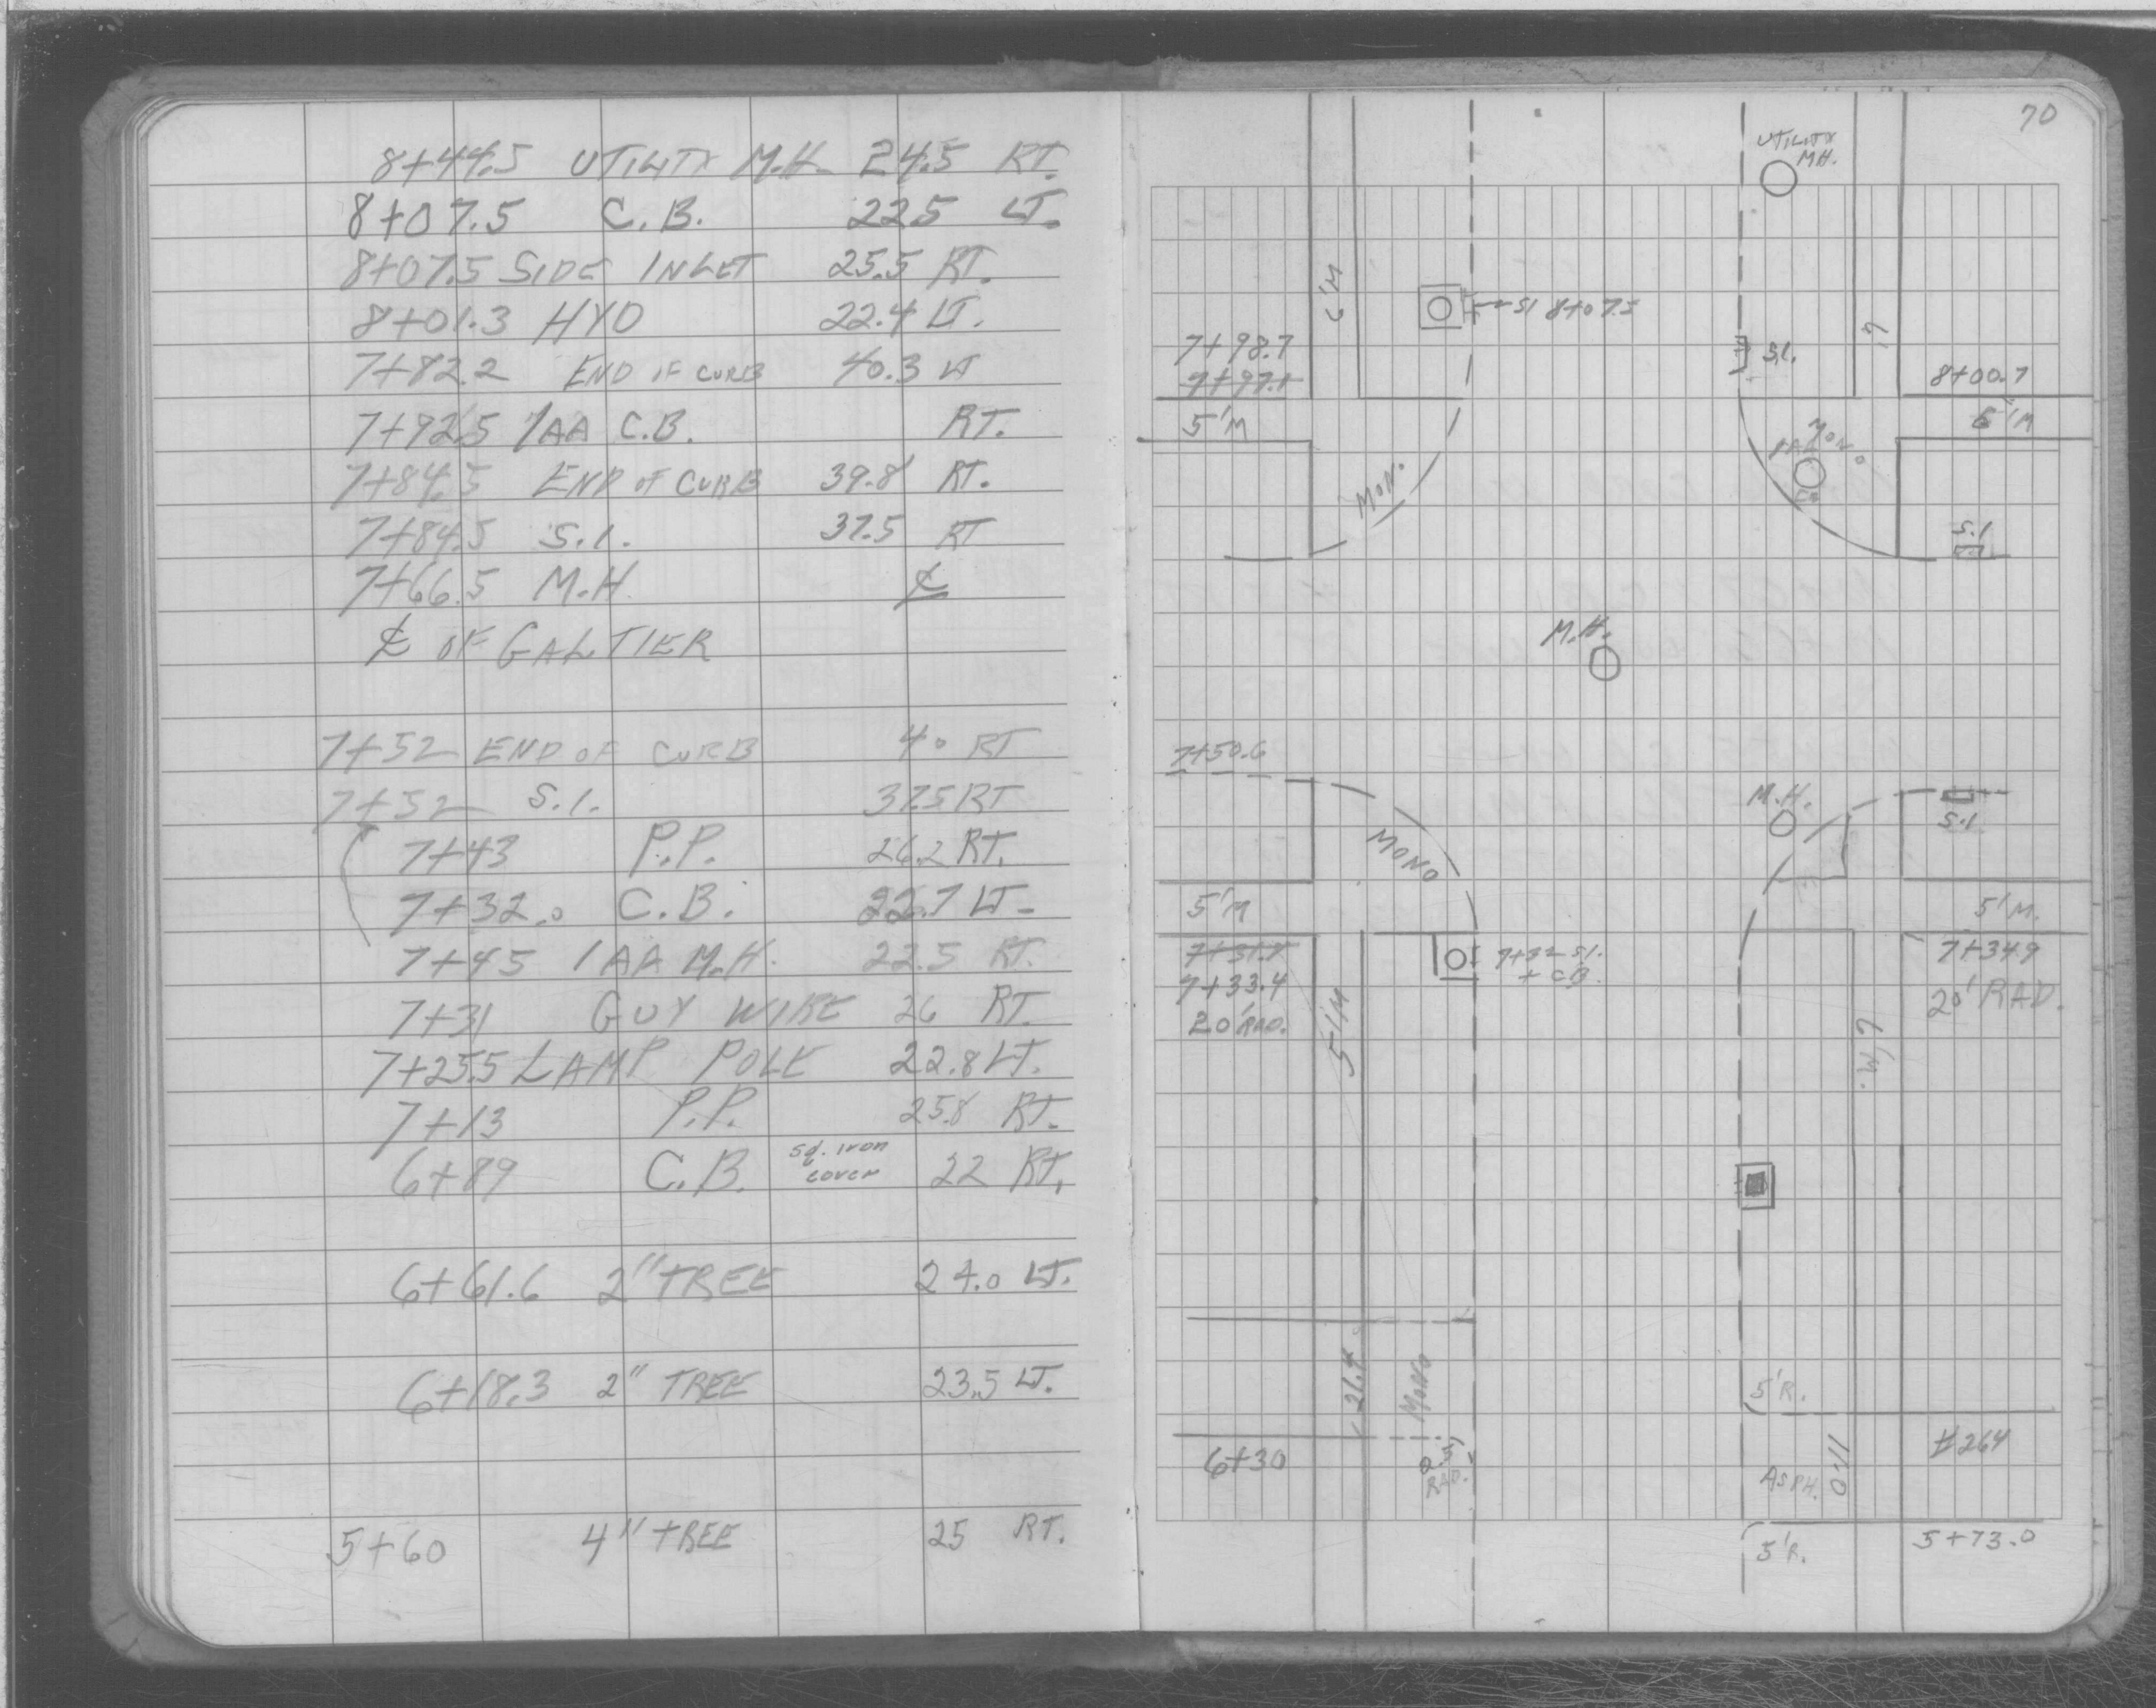 8+44.5 UTILITY M.H. 24.5 RT.
8+07.5 C.B. 22.5 LT.
8+07.5 SIDE INLET 25.5 RT.
8+01.3 HYD 22.4 LT.
7+82.2 END OF CURB 40.3 LT
7+92.5 1AA C.B. RT.
7+84.5 END OF CURB 39.8 RT.
7+84.5 S.I. 37.5 RT
7+66.5 M.H. ℄
℄ OF GALTIER
7+52 END OF CURB 40 RT
7+52 S.I. 37.5 RT
7+43 P.P. 26.2 RT.
7+32.0 C.B. 22.7 LT.
7+45 1AA M.H. 22.5 RT.
7+31 GUY WIRE 26 RT.
7+25.5 LAMP POLE 22.8 LT.
7+13 P.P. 25.8 RT.
6+89 C.B. sq. iron cover 22 RT.
6+61.6 2" TREE 24.0 LT.
6+18.3 2" TREE 23.5 LT.
5+60 4" TREE 25 RT.
70
UTILITY
M.H.
6'M
SI 8+07.5
6'
7+98.7
7+97.1
S.I.
8+00.7
5'M
6'M
MON.
MON.
CB
S.I
M.H.
7+50.6
MONO
M.H.
S.I
5'M
5'M.
7+31.7
7+33.4
20' RAD.
7+32 S.I.
+ C.B.
7+34.9
20' RAD.
5'M
6'M.
26.4
MONO
5'R.
6+30
2.5'
RAD.
ASPH.
11.0
#264
5'R.
5+73.0